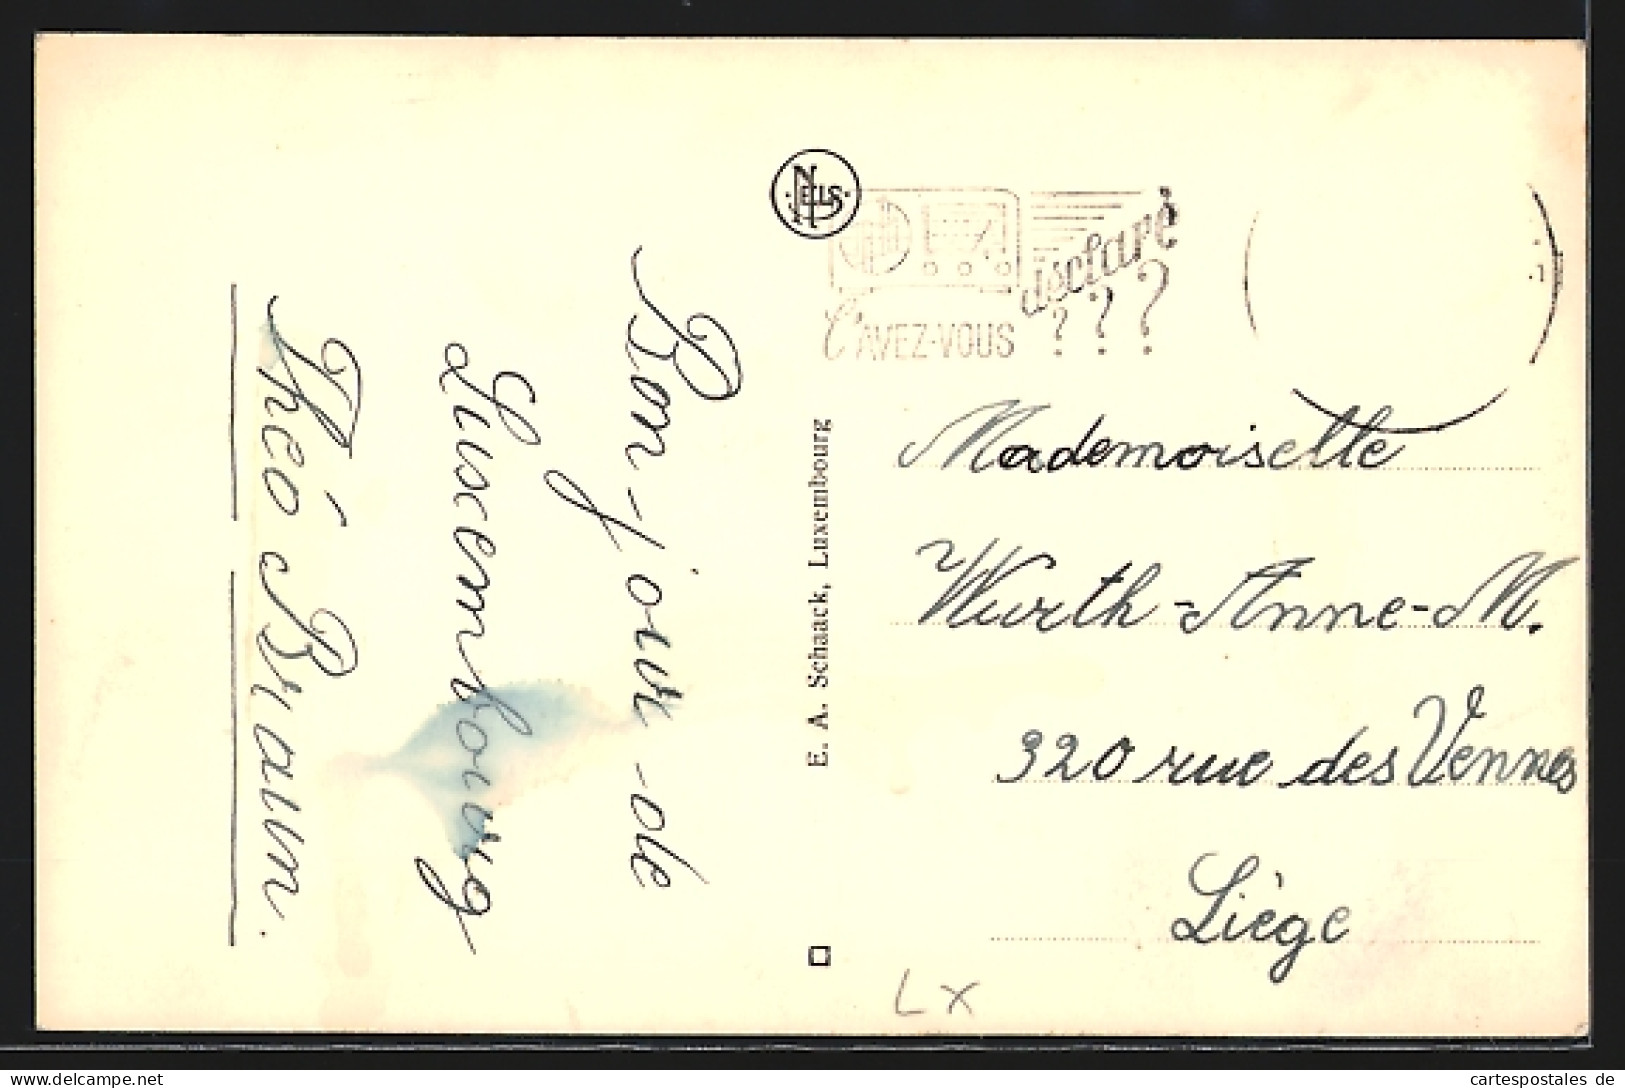 Bon-jour de
Luxembourg
Théo Braun.
E. A. Schaack, Luxembourg
NELS
L'AVEZ-VOUS
déclaré
???
Mademoiselle
Wurth-Anne-M.
320 rue des Vennes
Liège
LX
cartespostales de